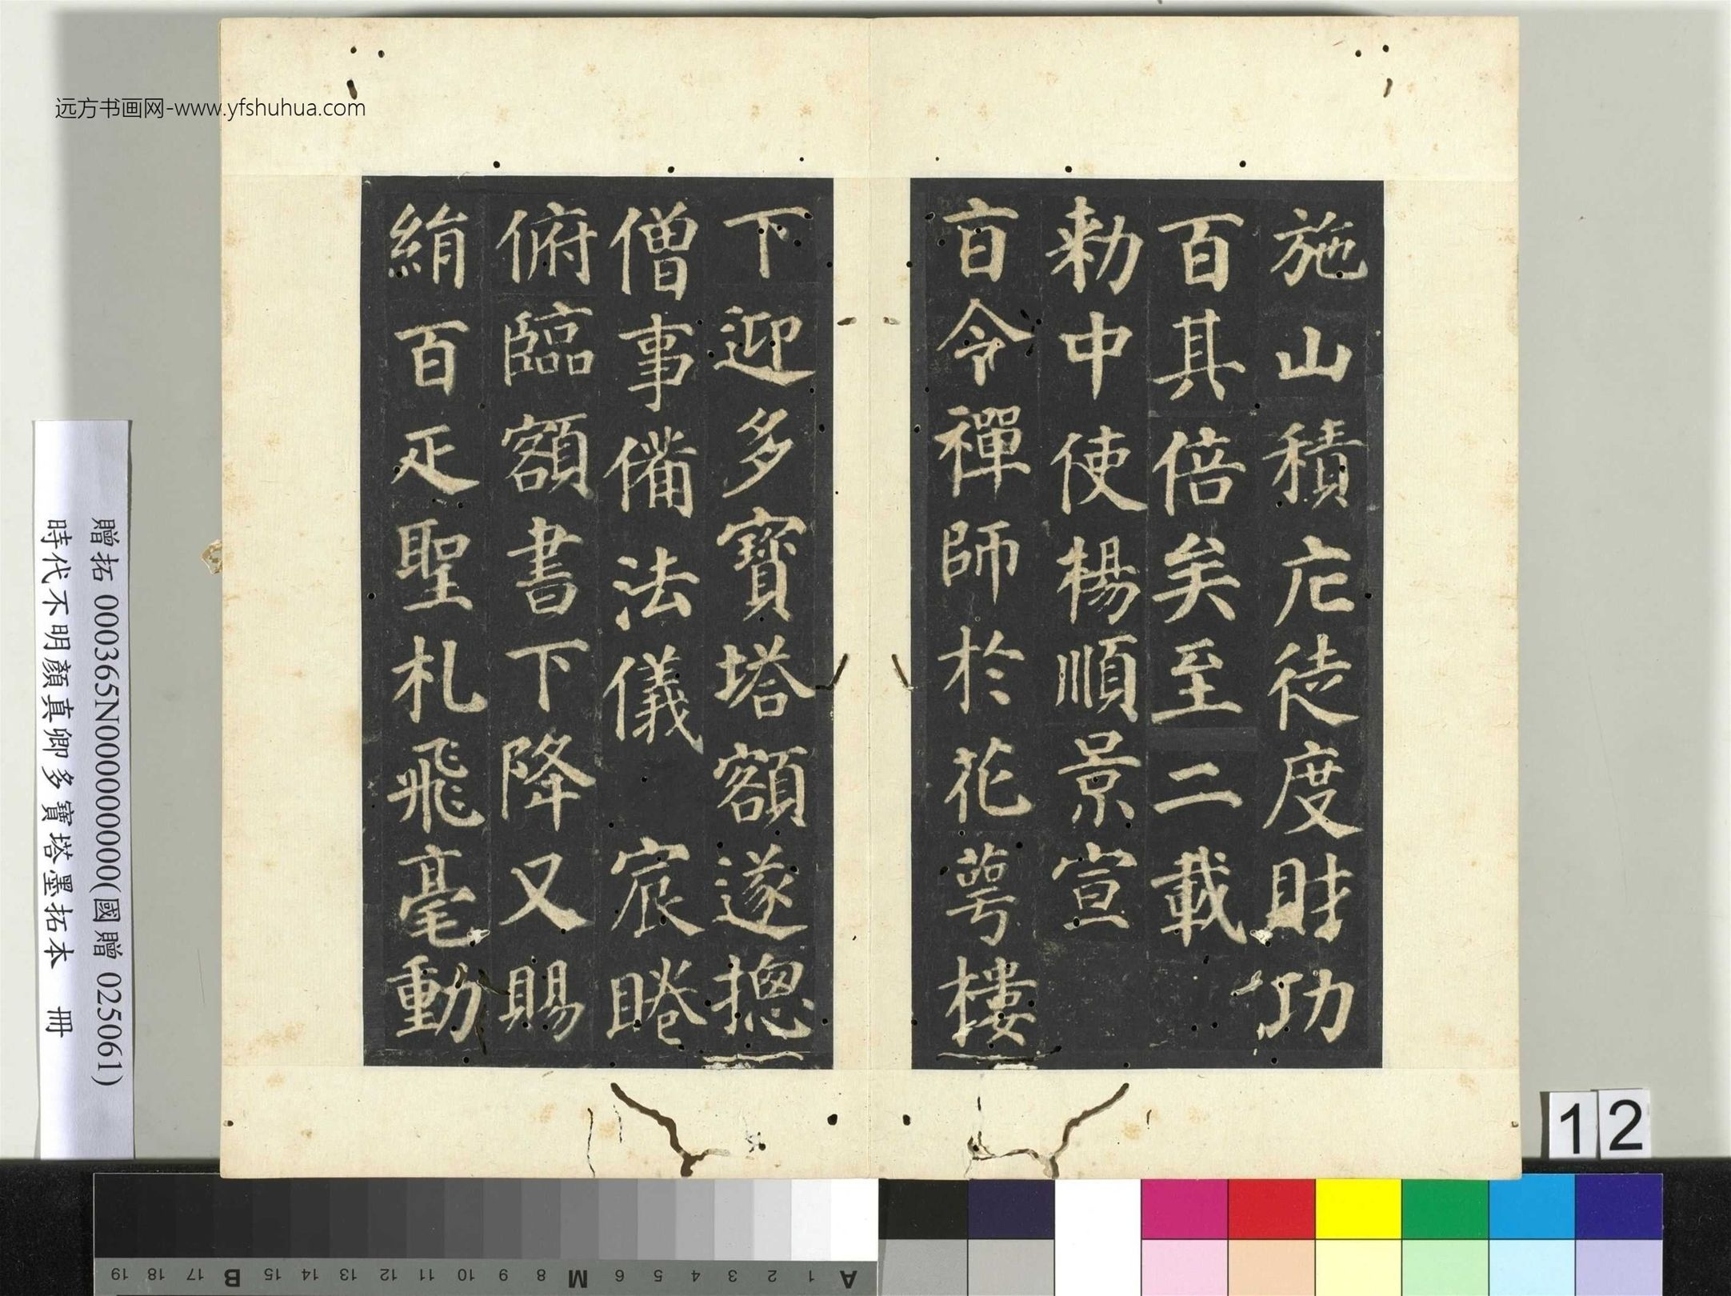 远方书画网-www.yfshuhua.com
施山積庀徒度財功
百其倍矣至二載
勑中使楊順景宣
㫖令禪師於花萼樓
下迎多寳塔額遂揔
僧事備法儀 宸睠
俯臨額書下降又賜
絹百疋聖札飛毫動
贈拓 000365N000000000(國贈 025061)
時代不明顏真卿多寶塔墨拓本 冊
12
19 18 17 B 15 14 13 12 11 10 9 8 M 6 5 4 3 2 1 A